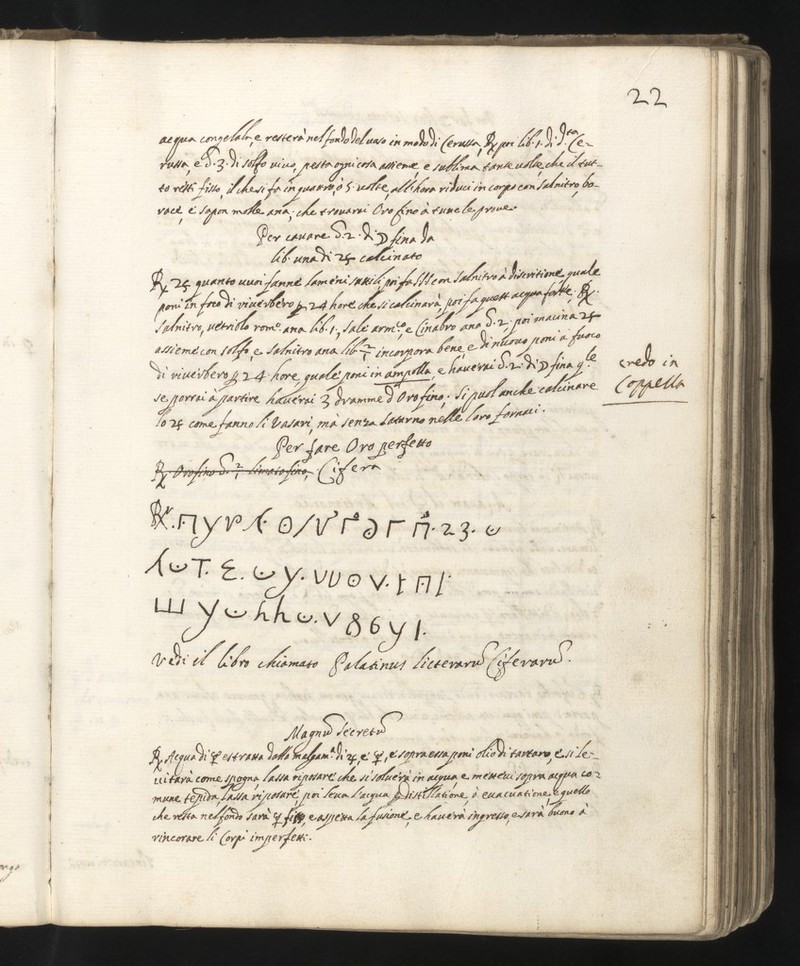 22
acqua congelata, e resterà nel fondo del vaso in modo di Cerussa, ℞ poi lib. 1. di d.ta Ce-
russa, e ℥. 3. di solfo vivo, pesta ogni cosa assieme, e sublima tante volte, che il tut-
to resti fisso, il che si fa in quattro, ò 5. volte, all'hora riduci in corpo con Salnitro, bo-
race, e sapon molle ana, che trovarai Oro fino à tutte le prove.
Per cavare ℥. 2. di ☽ fina da
lib. una di ♃ calcinato
℞ ♃ quanto vuoi fanne lameni sottili poi fa SSS con Salnitro à discritione quale
poni in foco di riverbero p 24 hore che si calcinarà, poi fa quest acqua forte. ℞.
Salnitro, vetriolo rom.o ana lib. 1., sale arm.o, e Cinabro ana ℥. 2. poi macina ♃
assieme con solfo, e Salnitro ana lib. incorpora bene, e di nuovo poni à fuoco
di riverbero p 24 hore, quale poni in ampolla, e haverai ℥. 2. di ☽ fina q.le
se porrai à partire haverai 3 dramme d'Oro fino. Si puol anche calcinare
lo ♃ come fanno li Vasari, mà senza Saturno nelle loro fornaci.
credo in
Coppella
Per fare Oro perfetto
℞ Oro fino limato fino, Cifera
Vedi il libro chiamato Palatinus licterarũ Ciferarũ.
Magnũ Secretũ
℞ Acqua di ☿ estratta dalla malgam.a di ♃, e ☿, e sopra essa poni olio di tartaro, e si le-
vitarà come spogna lassa riposare che si solverà in acqua e mettevi sopra acqua co-
mune tepida, lassa riposare, poi leva l'acqua p distillatione, ò evacuatione, e quello
che resta nel fondo sarà ☿ fisso, e aspetta la fusione, e haverà ingresso, e sarà buono à
rincorare li Corpi imperfetti.